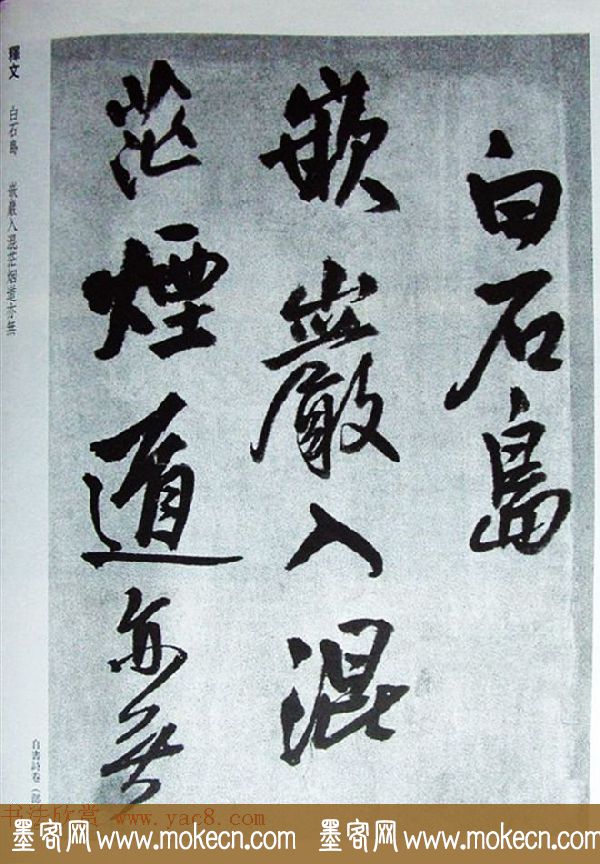 白石島
嵌巖入混
茫煙遁亦無
釋文 白石島 嵌巖入混茫烟遁亦無
自書詩卷（部
书法欣赏 www.yac8.com
墨客网 www.mokecn.com 墨客网 www.mokecn.com